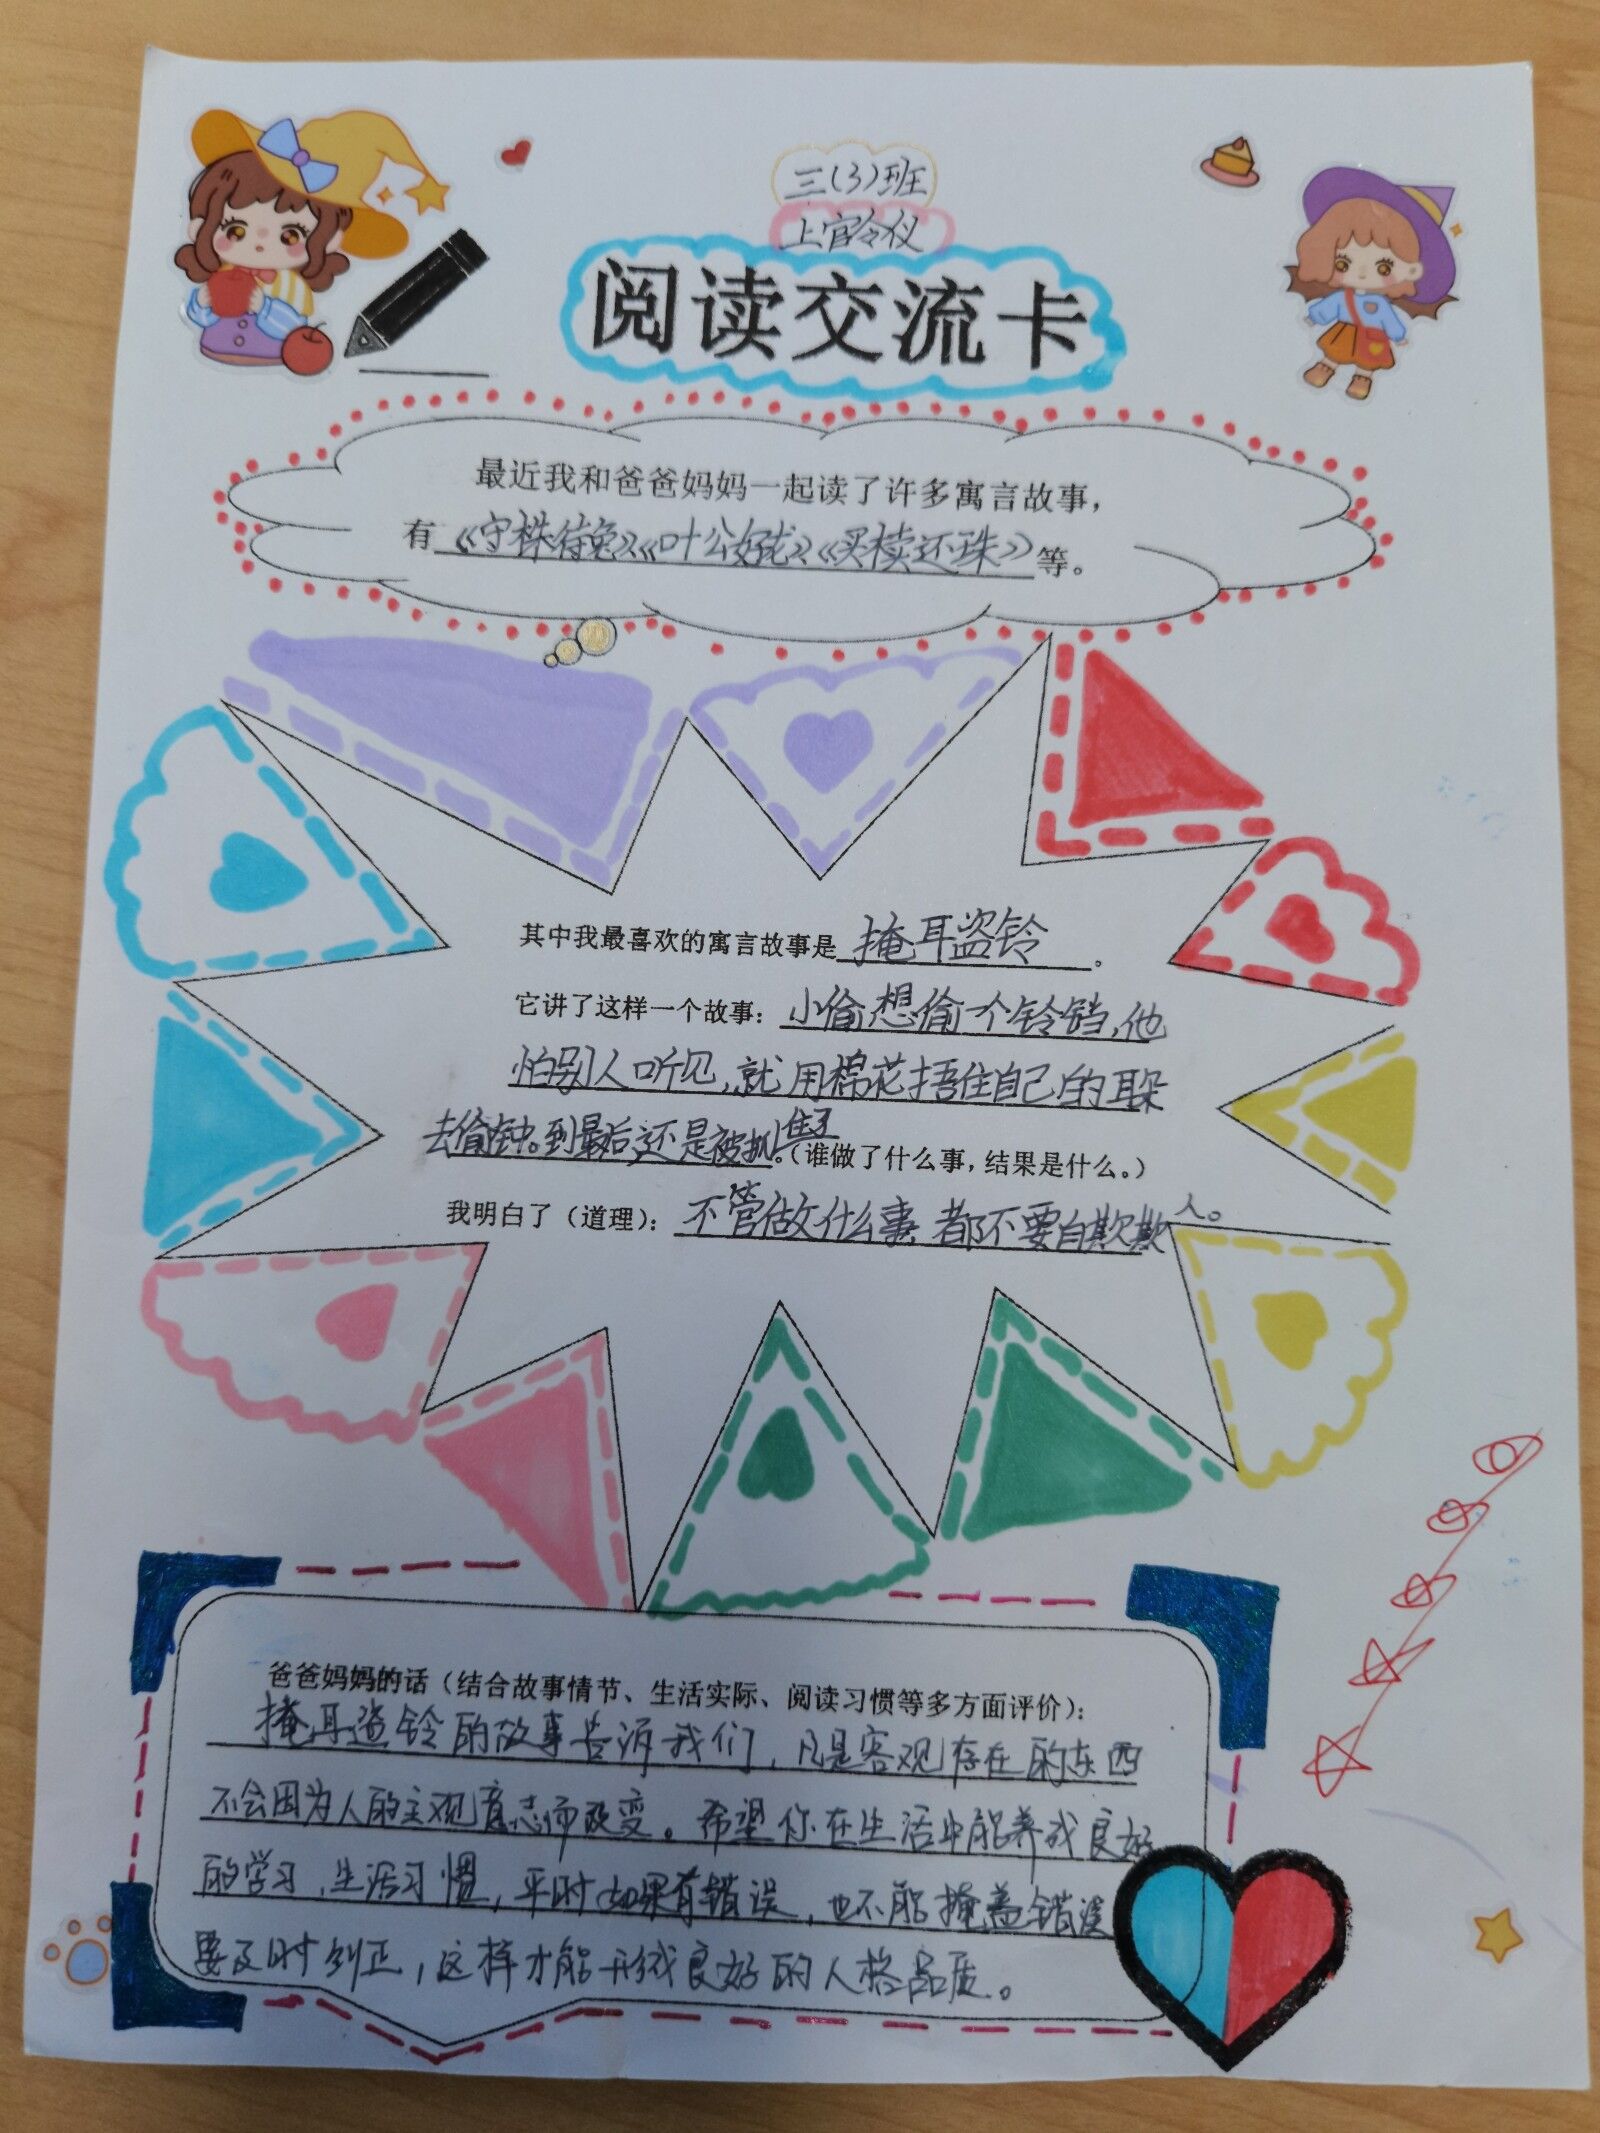 三(3)班
上官令仪
阅读交流卡
最近我和爸爸妈妈一起读了许多寓言故事，
有《守株待兔》、《叶公好龙》、《买椟还珠》等。
其中我最喜欢的寓言故事是掩耳盗铃。
它讲了这样一个故事：小偷想偷个铃铛，他
怕别人听见，就用棉花捂住自己的耳朵
去偷钟。到最后还是被抓住了。（谁做了什么事，结果是什么。）
我明白了（道理）：不管做什么事，都不要自欺欺人。
爸爸妈妈的话（结合故事情节、生活实际、阅读习惯等多方面评价）：
掩耳盗铃的故事告诉我们，凡是客观存在的东西
不会因为人的主观意志而改变。希望你在生活中能养成良好
的学习，生活习惯，平时如果有错误，也不能掩盖错误
要及时纠正，这样才能形成良好的人格品质。